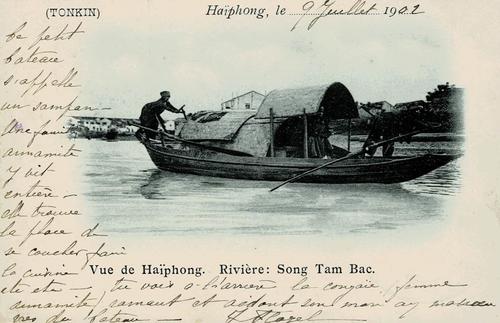 (TONKIN)
Haïphong, le 9 Juillet 1902
Ce petit
bateau
s'appelle
un sampan -
Une famille
annamite
y vit
entière -
elle trouve
la place de
se coucher, faire
la cuisine
etc etc -
Vue de Haïphong. Rivière: Song Tam Bac.
tu vois à l'arrière la congaïe, femme
annamite, ramant et aidant son
du bateau -